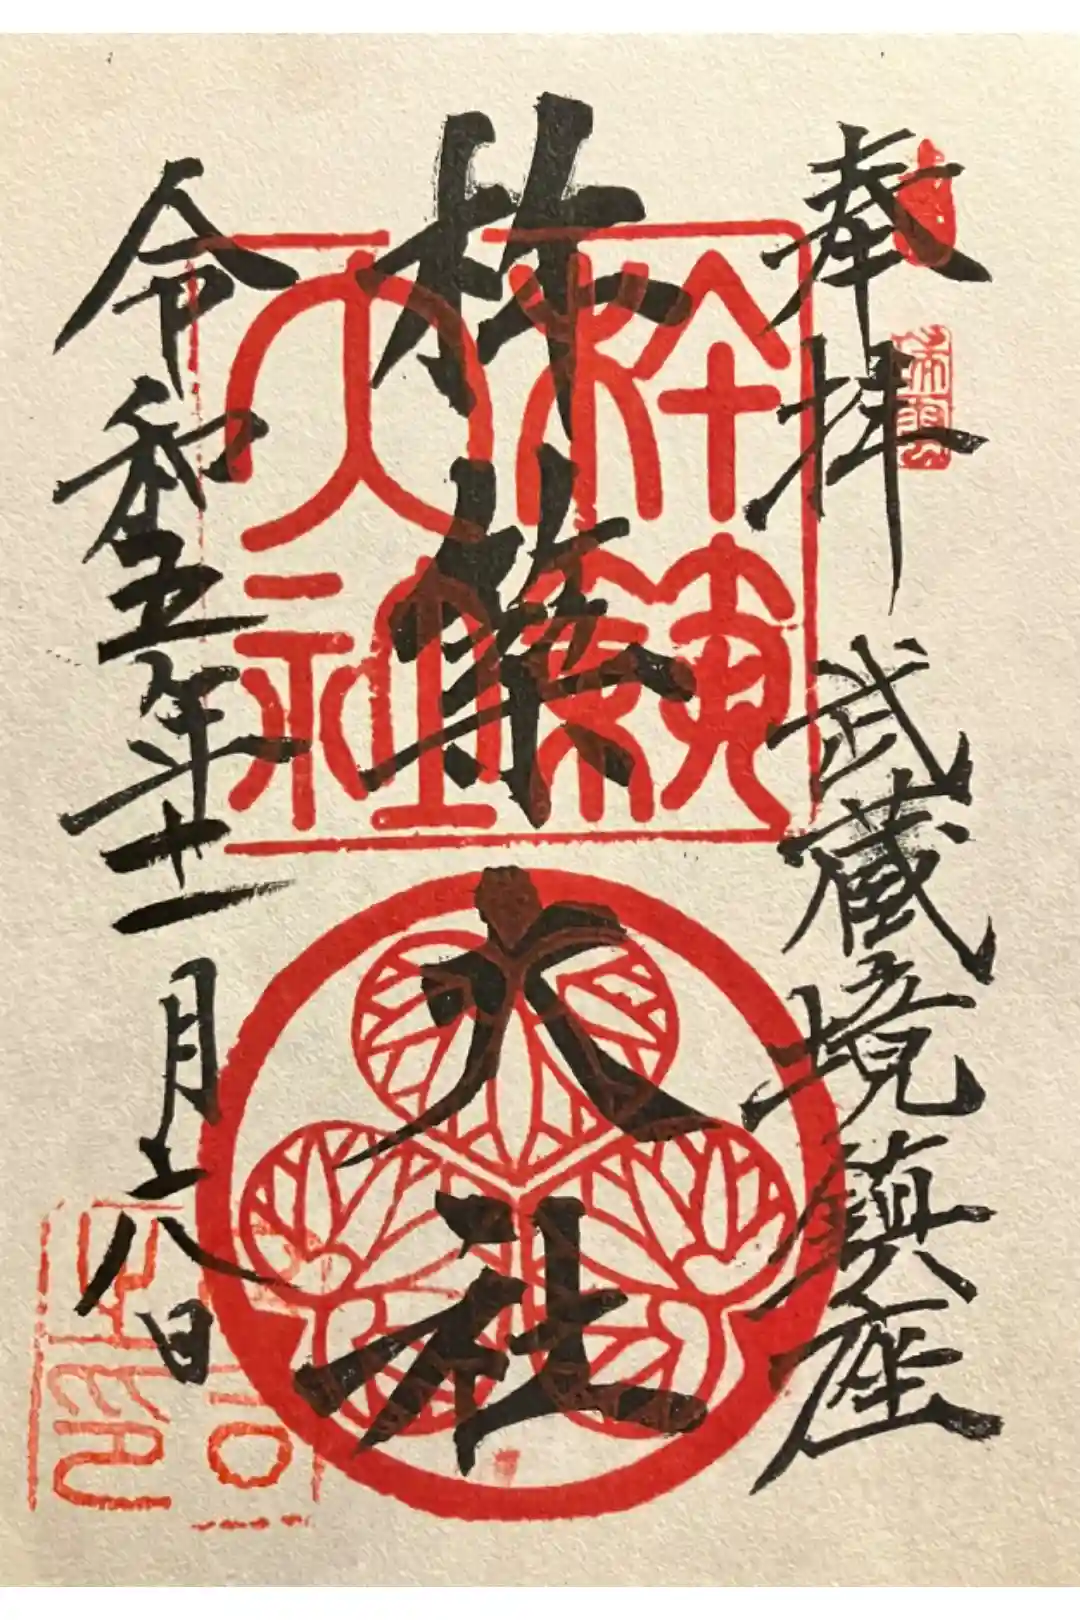 奉拝
武蔵境鎮座
杵築大社
令和五年十一月十八日
杵築
大社